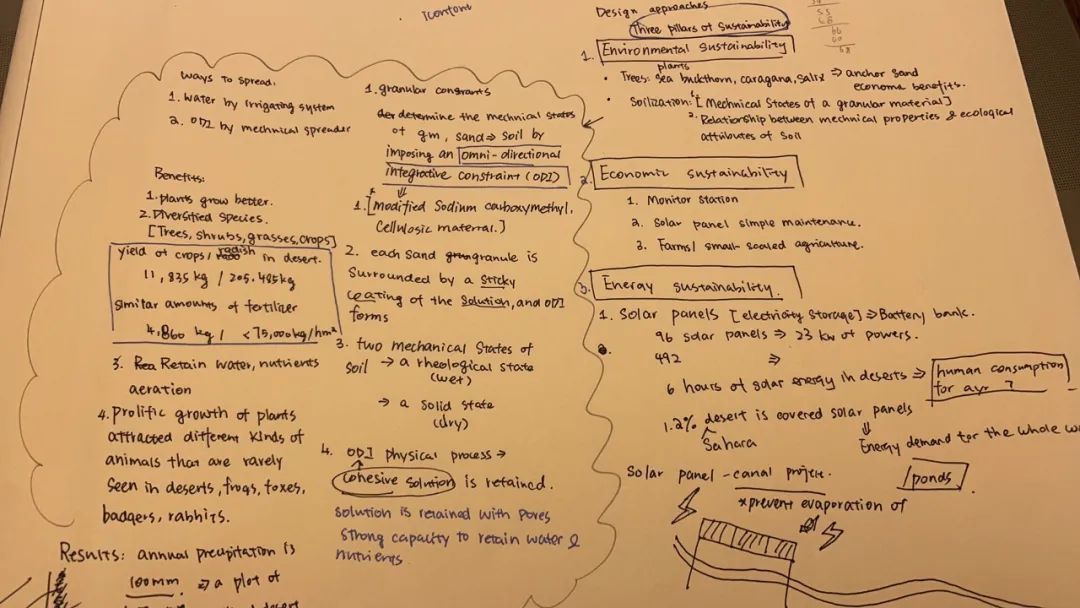 Ways to spread.
1. water by irrigating system
2. ODI by mechnical spreader
Benefits:
1. plants grow better.
2. Diversified species.
[Trees, shrubs, grasses, crops]
yield of crops / radish in desert.
11,835 kg / 205.485kg
similar amounts of fertilizer
4,860 kg / <75,000kg/hm²
3. Retain water, nutrients
aeration
4. Prolific growth of plants
attracted different kinds of
animals that are rarely
seen in deserts, frogs, foxes,
badgers, rabbits.
Results: annual precipitation is
100mm. ⇒ a plot of
1. granular constrants
determine the mechnical states
of gm, sand ⇒ soil by
imposing an omni-directional
integrative constraint (ODI)
1. [modified Sodium carboxymethyl,
Cellulosic material.]
2. each sand granule is
surrounded by a sticky
coating of the solution, and ODI
forms
3. two mechanical states of
soil → a rheological state
(wet)
→ a solid state
(dry)
4. ODI physical process →
cohesive solution is retained.
solution is retained with pores
strong capacity to retain water &
nutrients
Design approaches
Three pillars of sustainability
55
66
60
1. Environmental sustainability
plants
• Trees: sea buckthorn, caragana, salix ⇒ anchor sand
economic benefits.
• Soilization: 1. [Mechnical States of a granular material]
2. Relationship between mechnical properties & ecological
attributes of soil
2. Economic sustainability
1. Monitor station
2. Solar panel simple maintenance.
3. Farms/ small-scaled agriculture.
3. Energy sustainability.
1. Solar panels [electricity storage] ⇒ Battery bank.
96 solar panels ⇒ 23 kw of powers.
492 ⇒
6 hours of solar energy in deserts ⇒ human consumption
for a yr ?
1.2% desert is covered solar panels
Sahara
⇓
Energy demand for the whole
Solar panel - canal project.
/ponds
*prevent evaporation of